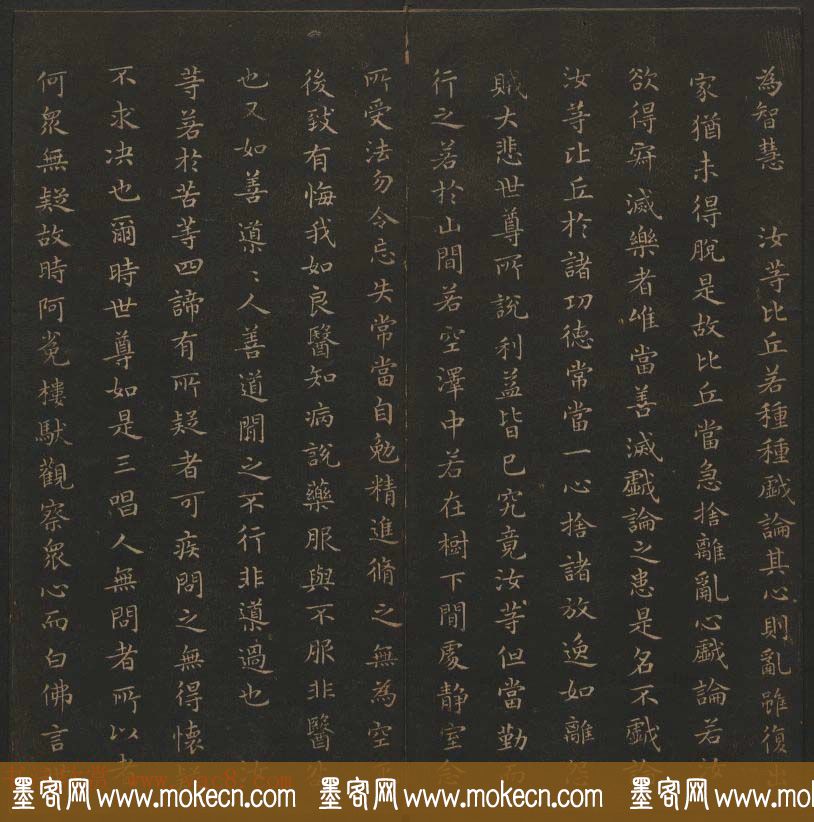 為智慧　汝等比丘若種種戲論其心則亂雖復出
家猶未得脫是故比丘當急捨離亂心戲論若汝
欲得寂滅樂者唯當善滅戲論之患是名不戲論
汝等比丘於諸功德常當一心捨諸放逸如離怨
賊大悲世尊所說利益皆已究竟汝等但當勤而
行之若於山間若空澤中若在樹下閒處靜室念
所受法勿令忘失常當自勉精進脩之無為空
後致有悔我如良醫知病說藥服與不服非醫咎
也又如善導〻人善道聞之不行非導過也　汝
等若於苦等四諦有所疑者可疾問之無得懷疑
不求決也爾時世尊如是三唱人無問者所以者
何眾無疑故時阿㝹樓馱觀察眾心而白佛言
墨客网 www.mokecn.com 墨客网 www.mokecn.com 墨客网 www.